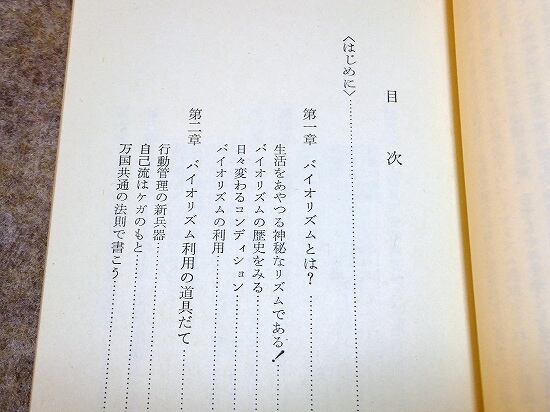 目次
〈はじめに〉
第一章 バイオリズムとは？
生活をあやつる神秘なリズムである！
バイオリズムの歴史をみる
日々変わるコンディション
バイオリズムの利用
第二章 バイオリズム利用の道具だて
行動管理の新兵器
自己流はケガのもと
万国共通の法則で書こう